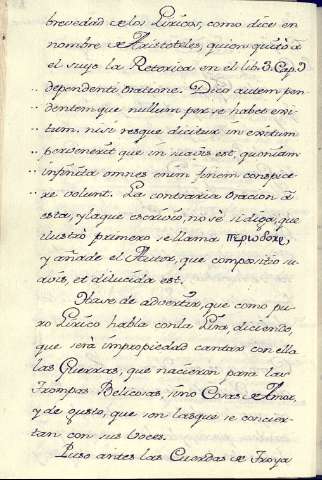 brevedad de los Lyricos, como dice en
nombre de Aristoteles, quien quitò à
el suyo la Retorica en el lib. 3. Cap. 9
dependenti oratione. Dico autem pen-
dentem que nullum per se habet exi-
tum. nisi res que dicitur in exitum
pervenerit que in suavis est, quoniam
infinita omnes enim finem conspice-
re volunt. La contraria oracion à
esta, y la que escrivio, no sè si diga, que
ilustrò primero se llama περιοδος,
y añade el Autor, que compositio su-
avis, et dilucida est.
Hase de advertir, que como pu-
ro Lyrico habla con la Lyra, diciendo,
que serà impropiedad cantar con ella
las Guerras, que nacieron para las
Trompas Belicosas, sino Cosas de Amor,
y de gusto, que son las que se concier-
tan con sus Voces.
Puso antes las Cuerdas de Troya